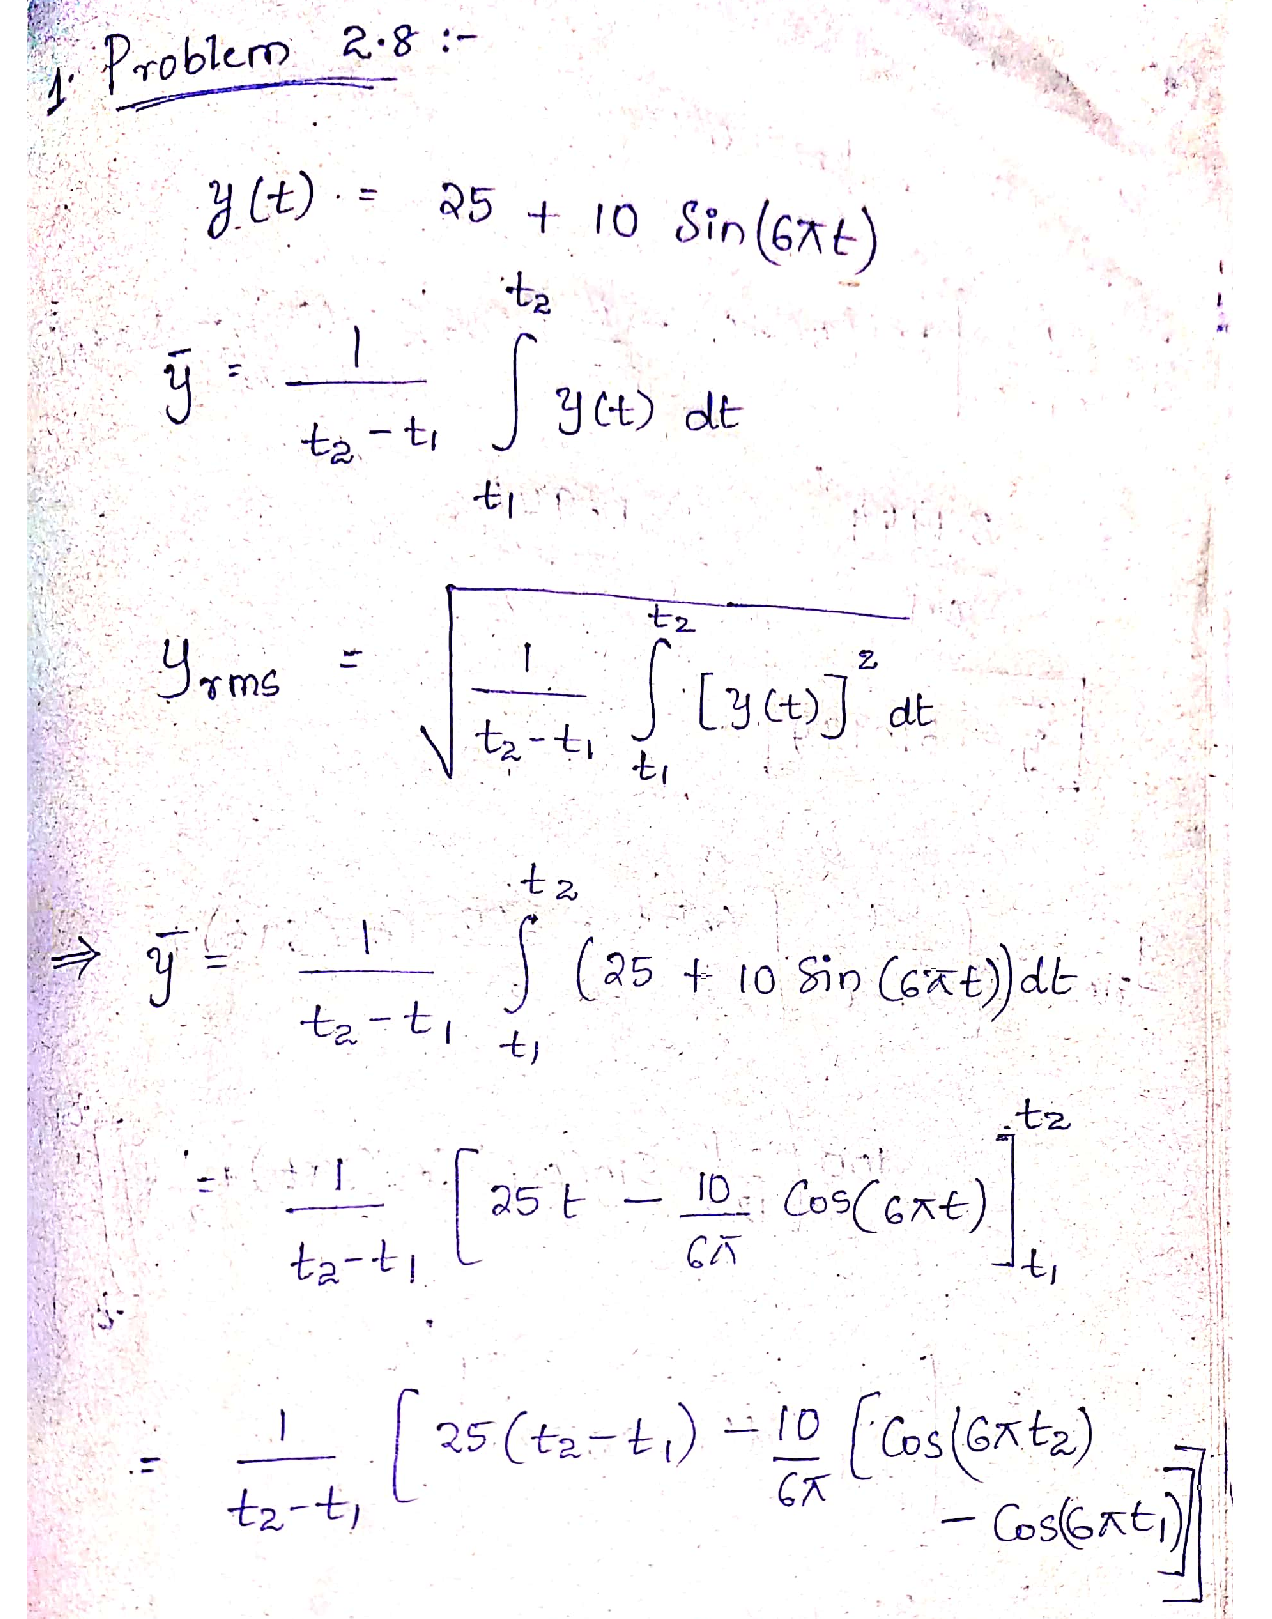 1. Problem 2.8 :-
y(t) = 25 + 10 Sin(6πt)
ȳ = 1/(t₂-t₁) ∫_{t₁}^{t₂} y(t) dt
y_rms = √( 1/(t₂-t₁) ∫_{t₁}^{t₂} [y(t)]² dt )
⇒ ȳ = 1/(t₂-t₁) ∫_{t₁}^{t₂} (25 + 10 Sin (6πt)) dt
= 1/(t₂-t₁) [ 25t - 10/6π Cos(6πt) ]_{t₁}^{t₂}
= 1/(t₂-t₁) [ 25(t₂-t₁) - 10/6π [Cos(6πt₂)
- Cos(6πt₁)]]